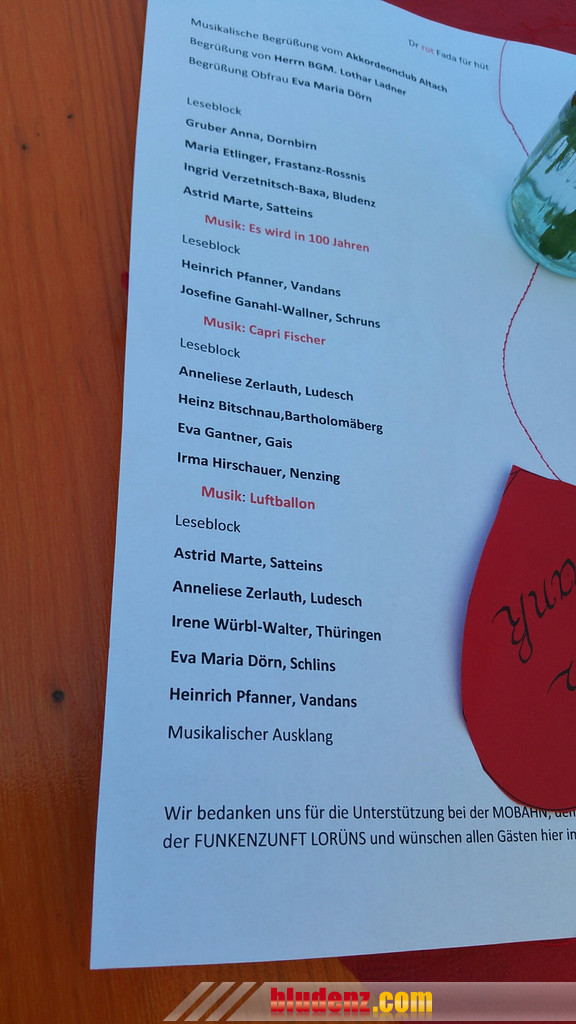 Dr rot Fada für hüt
Musikalische Begrüßung vom Akkordeonclub Altach
Begrüßung von Herrn BGM. Lothar Ladner
Begrüßung Obfrau Eva Maria Dörn
Leseblock
Gruber Anna, Dornbirn
Maria Etlinger, Frastanz-Rossnis
Ingrid Verzetnitsch-Baxa, Bludenz
Astrid Marte, Satteins
Musik: Es wird in 100 Jahren
Leseblock
Heinrich Pfanner, Vandans
Josefine Ganahl-Wallner, Schruns
Musik: Capri Fischer
Leseblock
Anneliese Zerlauth, Ludesch
Heinz Bitschnau,Bartholomäberg
Eva Gantner, Gais
Irma Hirschauer, Nenzing
Musik: Luftballon
Leseblock
Astrid Marte, Satteins
Anneliese Zerlauth, Ludesch
Irene Würbl-Walter, Thüringen
Eva Maria Dörn, Schlins
Heinrich Pfanner, Vandans
Musikalischer Ausklang
Wir bedanken uns für die Unterstützung bei der MOBAHN,
der FUNKENZUNFT LORÜNS und wünschen allen Gästen hier
bludenz.com